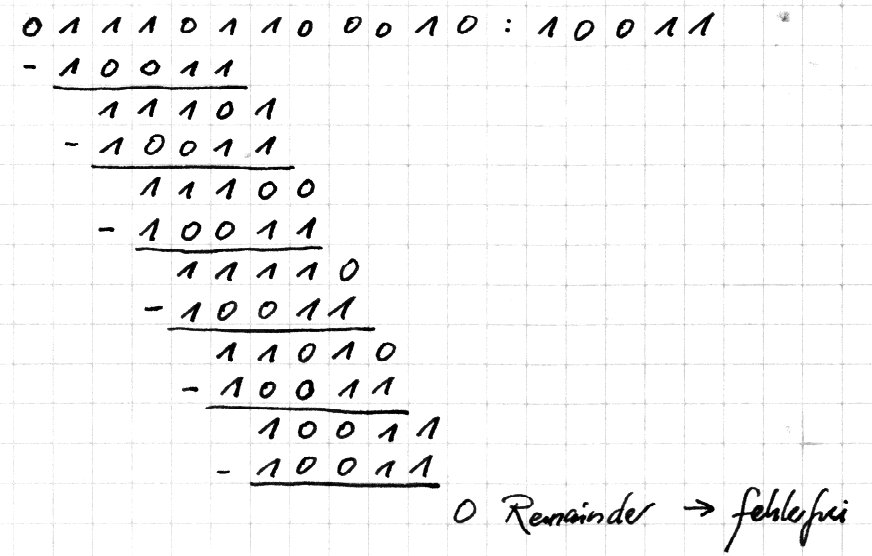 0 1 1 1 0 1 1 0 0 0 1 0 : 1 0 0 1 1
- 1 0 0 1 1
1 1 1 0 1
- 1 0 0 1 1
1 1 1 0 0
- 1 0 0 1 1
1 1 1 1 0
- 1 0 0 1 1
1 1 0 1 0
- 1 0 0 1 1
1 0 0 1 1
- 1 0 0 1 1
0 Remainder → fehlerfrei